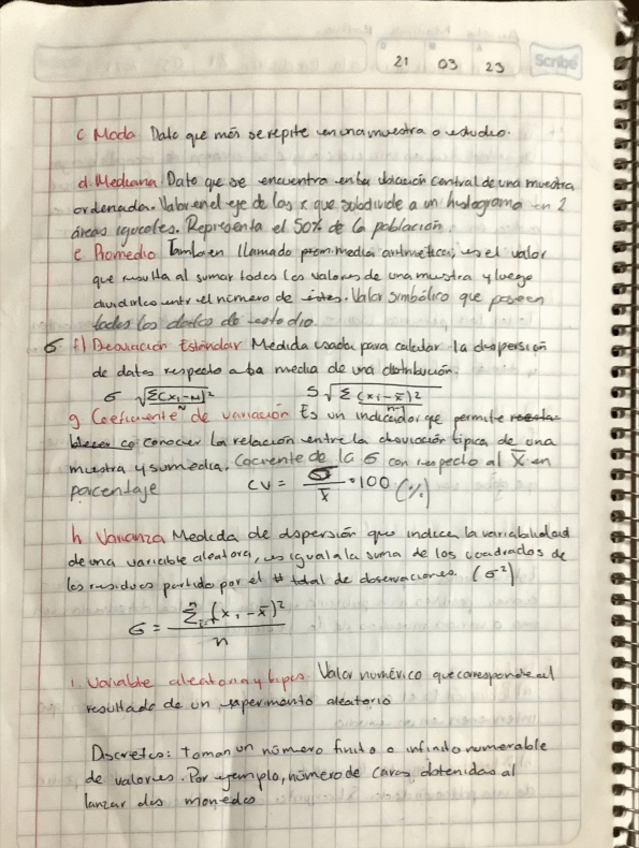 21 03 23 Scribe
c Moda Dato que más se repite en una muestra o estudio.
d. Mediana Dato que se encuentra en la ubicación central de una muestra
ordenada. Valor en el eje de las x que subdivide a un histograma en 2
áreas iguales. Representa el 50% de la población.
e Promedio También llamado media aritmética, es el valor
que resulta al sumar todos los valores de una muestra y luego
dividirlo entre el número de éstos. Valor simbólico que poseen
todos los datos de estudio.
σ f) Desviación Estándar Medida usada para calcular la dispersión
de datos respecto a la media de una distribución.
σ √Σ(x,-M)² S √Σ(x,-x̄)²
N n-1
g Coeficiente de variación Es un indicador que permite
conocer la relación entre la desviación típica de una
muestra y su media. Cociente de la σ con respecto al X̄ en
porcentaje CV = σ/x̄ · 100 (%)
h Varianza Medida de dispersión que indica la variabilidad
de una variable aleatoria, es igual a la suma de los cuadrados de
los residuos partido por el # total de observaciones. (σ²)
σ = Σ (x, - x̄)²
n
i. Variable aleatoria y tipos Valor numérico que corresponde al
resultado de un experimento aleatorio
Discretas: Toman un número finito o infinito numerable
de valores. Por ejemplo, número de caras obtenidas al
lanzar dos monedas